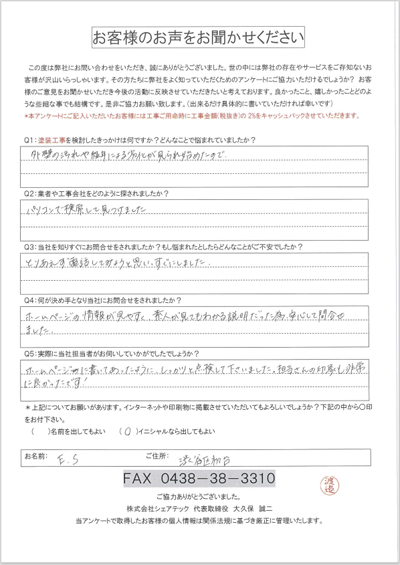 お客様のお声をお聞かせください
この度は弊社にお問い合わせをいただき、誠にありがとうございました。世の中には弊社の存在やサービスをご存知ないお
客様が沢山いらっしゃいます。その方たちに弊社をよく知っていただくためのアンケートにご協力いただけるでしょうか？ お客
様のご意見をお聞かせいただき今後の活動に反映させていただきたいと考えております。良かったこと、嬉しかったことどのよ
うな些細な事でも結構です。是非ご協力お願い致します。（出来るだけ具体的に書いていただければ幸いです）
*本アンケートにご記入いただいたお客様には工事ご用命時に工事金額(税抜き)の 2%をキャッシュバックさせていただきます。
Q1：塗装工事を検討したきっかけは何ですか？どんなことで悩まれていましたか？
外壁の汚れや
が見られ始めたので
Q2：業者や工事会社をどのように探されましたか？
パソコンで検索して見つけました
Q3：当社を知りすぐにお問合せをされましたか？もし悩まれたとしたらどんなことがご不安でしたか？
とりあえず電話してみようと思い、すぐにしました
Q4：何が決め手となり当社にお問合せをされましたか？
ホームページの情報が見やすく、素人が見てもわかる説明だった為、安心して問合せ
ました。
Q5：実際に当社担当者がお伺いしていかがでしたでしょうか？
ホームページに書いてあったように、しっかりと点検して下さいました。担当さんの印象も非常
に良かったです！
＊上記についてお願いがあります。インターネットや印刷物に掲載させていただいてもよろしいでしょうか？下記の中から〇印
をお付下さい。
（ ）名前を出してもよい （〇）イニシャルなら出してもよい
お名前： E.S ご住所：
FAX 0438-38-3310
ご協力ありがとうございました。
株式会社シェアテック 代表取締役 大久保 誠二
当アンケートで取得したお客様の個人情報は関係法規に基づき厳正に管理いたします。
渡邊